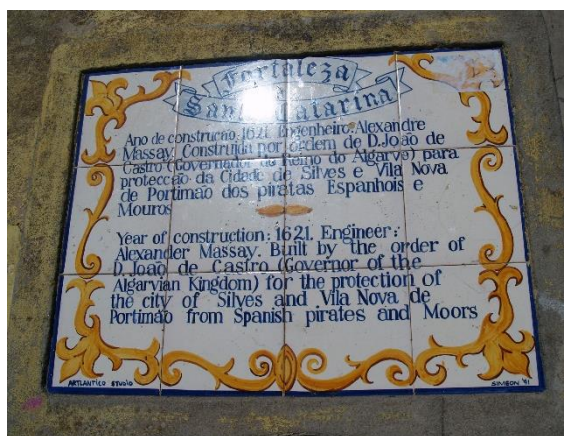 Fortaleza
Santa Catarina
Ano de construção: 1621. Engenheiro: Alexandre
Massay. Construida por ordem de D. João de
Castro (Governador do Reino do Algarve) para
protecção da Cidade de Silves e Vila Nova
de Portimão dos piratas Espanhois e
Mouros
Year of construction: 1621. Engineer:
Alexander Massay. Built by the order of
D. João de Castro (Governor of the
Algarvian Kingdom) for the protection of
the city of Silves and Vila Nova de
Portimão from Spanish pirates and Moors
ARTLANTICO STUDIO
SIMEON '91